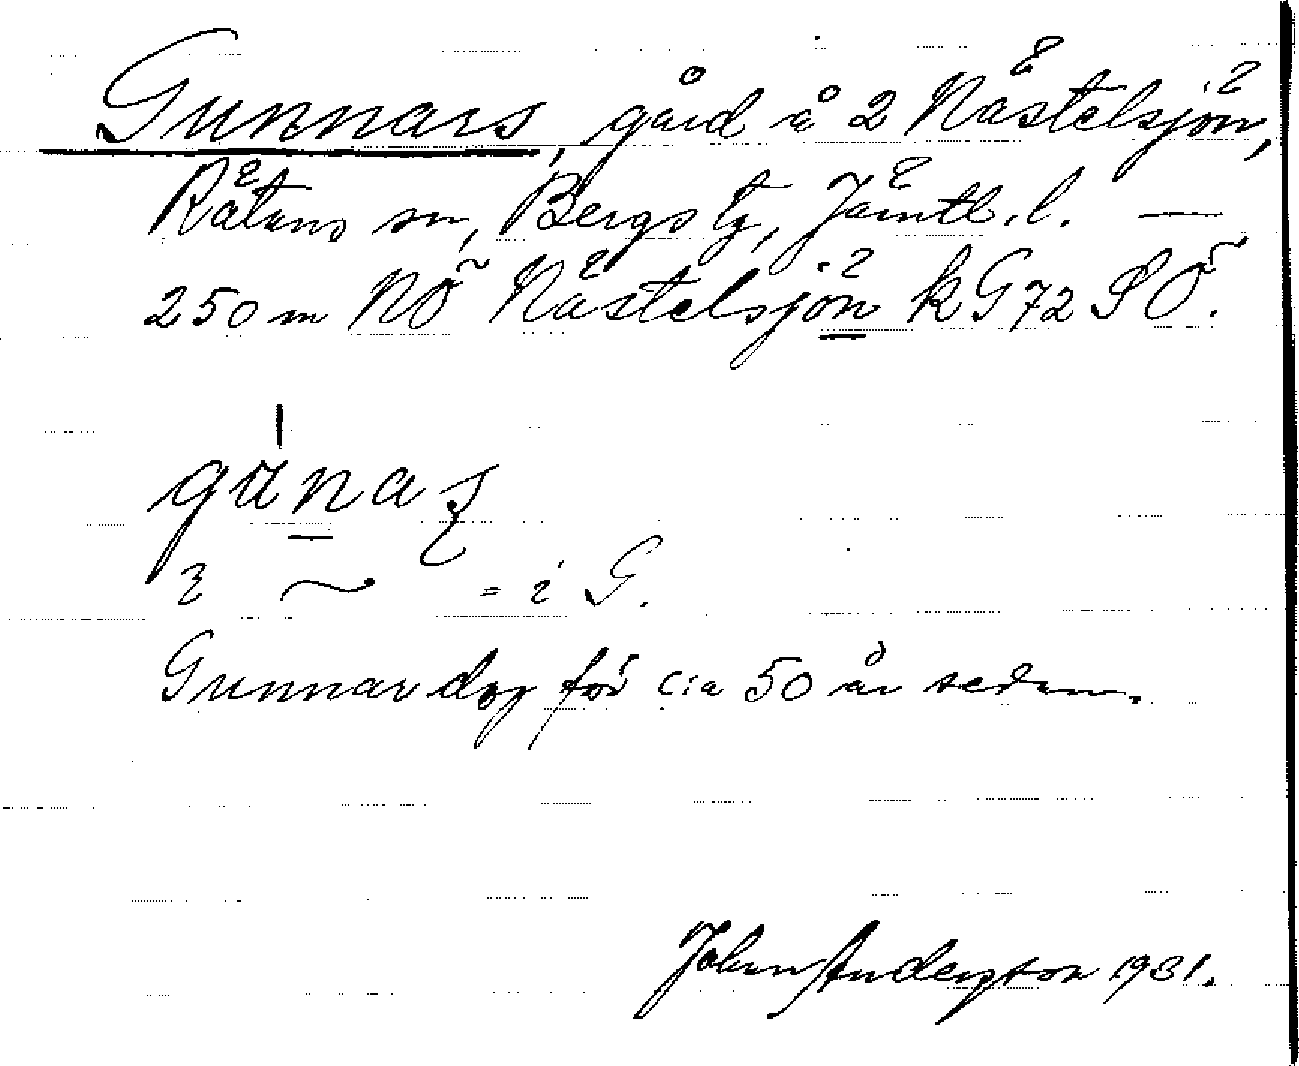 Gunnars, gård å 2 Nästelsjön,
Rätans sn, Bergs tg, Jämtl. l. —
250 m NÖ Nästelsjön k G 72 SÖ.
gunas
= i G.
Gunnar dog för c:a 50 år sedan.
Johan Anderzson 1931.